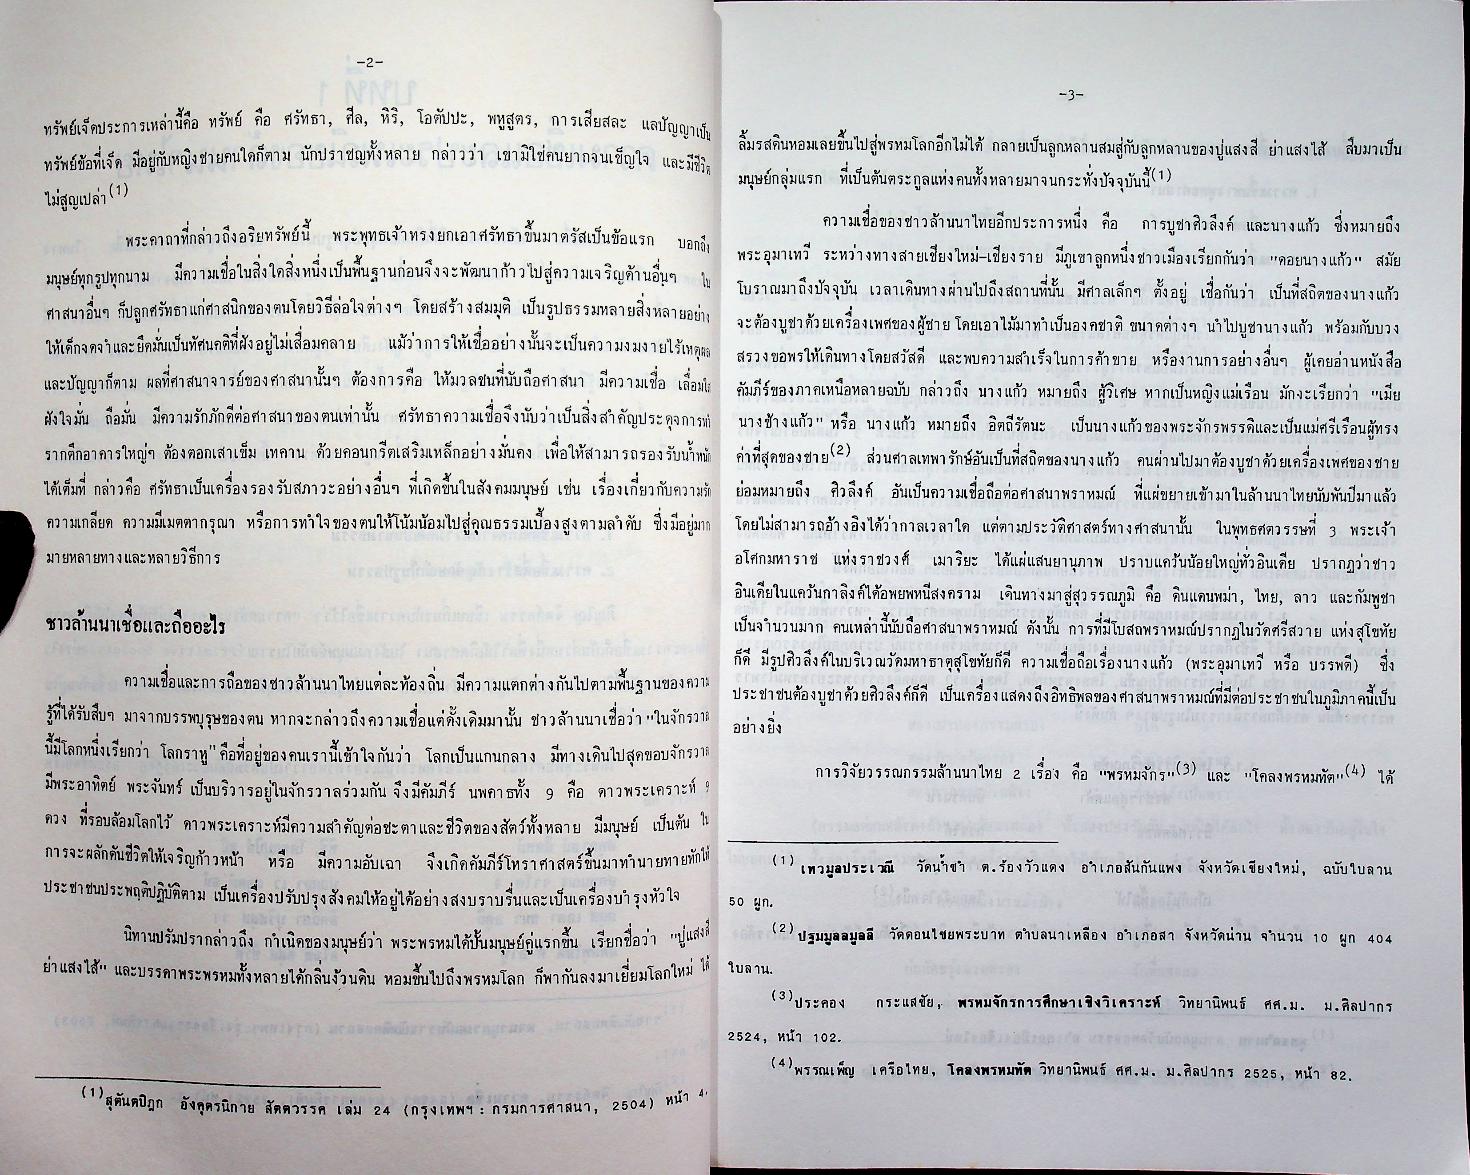 -2-
ทรัพย์เจ็ดประการเหล่านี้คือ ทรัพย์ คือ ศรัทธา, ศีล, หิริ, โอตัปปะ, พหูสูตร, การเสียสละ แลปัญญาเป็น
ทรัพย์ข้อที่เจ็ด มีอยู่กับหญิงชายคนใดก็ตาม นักปราชญ์ทั้งหลาย กล่าวว่า เขามิใช่คนยากจนเข็ญใจ และมีชีวิต
ไม่สูญเปล่า(1)
พระคาถาที่กล่าวถึงอริยทรัพย์นี้ พระพุทธเจ้าทรงยกเอาศรัทธาขึ้นมาตรัสเป็นข้อแรก บอกถึง
มนุษย์ทุกรูปทุกนาม มีความเชื่อในสิ่งใดสิ่งหนึ่งเป็นพื้นฐานก่อนจึงจะพัฒนาก้าวไปสู่ความเจริญด้านอื่นๆ ใน
ศาสนาอื่นๆ ก็ปลูกศรัทธาแก่ศาสนิกของตนโดยวิธีล่อใจต่างๆ โดยสร้างสมมุติ เป็นรูปธรรมหลายสิ่งหลายอย่าง
ให้เด็กจดจำและยึดมั่นเป็นทัศนคติที่ฝังอยู่ไม่เสื่อมคลาย แม้ว่าการให้เชื่ออย่างนั้นจะเป็นความงมงายไร้เหตุผล
และปัญญาก็ตาม ผลที่ศาสนาจารย์ของศาสนานั้นๆ ต้องการคือ ให้มวลชนที่นับถือศาสนา มีความเชื่อ เลื่อมใส
ฝังใจมั่น ถือมั่น มีความรักภักดีต่อศาสนาของตนเท่านั้น ศรัทธาความเชื่อจึงนับว่าเป็นสิ่งสำคัญประดุจการทำ
รากตึกอาคารใหญ่ๆ ต้องตอกเสาเข็ม เทคาน ด้วยคอนกรีตเสริมเหล็กอย่างมั่นคง เพื่อให้สามารถรองรับน้ำหนัก
ได้เต็มที่ กล่าวคือ ศรัทธาเป็นเครื่องรองรับสภาวะอย่างอื่นๆ ที่เกิดขึ้นในสังคมมนุษย์ เช่น เรื่องเกี่ยวกับความรัก
ความเกลียด ความมีเมตตากรุณา หรือการทำใจของตนให้โน้มน้อมไปสู่คุณธรรมเบื้องสูงตามลำดับ ซึ่งมีอยู่มาก
มายหลายทางและหลายวิธีการ
ชาวล้านนาเชื่อและถืออะไร
ความเชื่อและการถือของชาวล้านนาไทยแต่ละท้องถิ่น มีความแตกต่างกันไปตามพื้นฐานของความ
รู้ที่ได้รับสืบๆ มาจากบรรพบุรุษของตน หากจะกล่าวถึงความเชื่อแต่ดั้งเดิมมานั้น ชาวล้านนาเชื่อว่า "ในจักรวาล
นี้มีโลกหนึ่งเรียกว่า โลกราหู" คือที่อยู่ของคนเรานี้เข้าใจกันว่า โลกเป็นแกนกลาง มีทางเดินไปสุดขอบจักรวาล
มีพระอาทิตย์ พระจันทร์ เป็นบริวารอยู่ในจักรวาลร่วมกัน จึงมีคัมภีร์ นพคาธทั้ง 9 คือ ดาวพระเคราะห์ 9
ดวง ที่รอบล้อมโลกไว้ ดาวพระเคราะห์มีความสำคัญต่อชะตาและชีวิตของสัตว์ทั้งหลาย มีมนุษย์ เป็นต้น ใน
การจะผลักดันชีวิตให้เจริญก้าวหน้า หรือ มีความอับเฉา จึงเกิดคัมภีร์โหราศาสตร์ขึ้นมาทำนายทายทักให้
ประชาชนประพฤติปฏิบัติตาม เป็นเครื่องปรับปรุงสังคมให้อยู่ได้อย่างสงบราบรื่นและเป็นเครื่องบำรุงหัวใจ
นิทานปรัมปรากล่าวถึง กำเนิดของมนุษย์ว่า พระพรหมได้ปั้นมนุษย์คู่แรกขึ้น เรียกชื่อว่า "ปู่แสงสี
ย่าแสงไส้" และบรรดาพระพรหมทั้งหลายได้กลิ่นง้วนดิน หอมขึ้นไปถึงพรหมโลก ก็พากันลงมาเยี่ยมโลกใหม่ ได้
(1)สุตันตปิฎก อังคุตรนิกาย สัตตวรรค เล่ม 24 (กรุงเทพฯ : กรมการศาสนา, 2504) หน้า 4.
-3-
ลิ้มรสดินหอมเลยขึ้นไปสู่พรหมโลกอีกไม่ได้ กลายเป็นลูกหลานสมสู่กับลูกหลานของปู่แสงสี ย่าแสงไส้ สืบมาเป็น
มนุษย์กลุ่มแรก ที่เป็นต้นตระกูลแห่งคนทั้งหลายมาจนกระทั่งปัจจุบันนี้(1)
ความเชื่อของชาวล้านนาไทยอีกประการหนึ่ง คือ การบูชาศิวลึงค์ และนางแก้ว ซึ่งหมายถึง
พระอุมาเทวี ระหว่างทางสายเชียงใหม่-เชียงราย มีภูเขาลูกหนึ่งชาวเมืองเรียกกันว่า "ดอยนางแก้ว" สมัย
โบราณมาถึงปัจจุบัน เวลาเดินทางผ่านไปถึงสถานที่นั้น มีศาลเล็กๆ ตั้งอยู่ เชื่อกันว่า เป็นที่สถิตของนางแก้ว
จะต้องบูชาด้วยเครื่องเพศของผู้ชาย โดยเอาไม้มาทำเป็นองคชาติ ขนาดต่างๆ นำไปบูชานางแก้ว พร้อมกับบวง
สรวงขอพรให้เดินทางโดยสวัสดี และพบความสำเร็จในการค้าขาย หรืองานการอย่างอื่นๆ ผู้เคยอ่านหนังสือ
คัมภีร์ของภาคเหนือหลายฉบับ กล่าวถึง นางแก้ว หมายถึง ผู้วิเศษ หากเป็นหญิงแม่เรือน มักจะเรียกว่า "เมีย
นางช้างแก้ว" หรือ นางแก้ว หมายถึง อิตถีรัตนะ เป็นนางแก้วของพระจักรพรรดิและเป็นแม่ศรีเรือนผู้ทรง
ค่าที่สุดของชาย(2) ส่วนศาลเทพารักษ์อันเป็นที่สถิตของนางแก้ว คนผ่านไปมาต้องบูชาด้วยเครื่องเพศของชาย
ย่อมหมายถึง ศิวลึงค์ อันเป็นความเชื่อถือต่อศาสนาพราหมณ์ ที่แผ่ขยายเข้ามาในล้านนาไทยนับพันปีมาแล้ว
โดยไม่สามารถอ้างอิงได้ว่ากาลเวลาใด แต่ตามประวัติศาสตร์ทางศาสนานั้น ในพุทธศตวรรษที่ 3 พระเจ้า
อโศกมหาราช แห่งราชวงศ์ เมาริยะ ได้แผ่แสนยานุภาพ ปราบแคว้นน้อยใหญ่ทั่วอินเดีย ปรากฏว่าชาว
อินเดียในแคว้นกาลิงค์ได้อพยพหนีสงคราม เดินทางมาสู่สุวรรณภูมิ คือ ดินแดนพม่า, ไทย, ลาว และกัมพูชา
เป็นจำนวนมาก คนเหล่านี้นับถือศาสนาพราหมณ์ ดังนั้น การที่มีโบสถพราหมณ์ปรากฏในวัดศรีสวาย แห่งสุโขทัย
ก็ดี มีรูปศิวลึงค์ในบริเวณวัดมหาธาตุสุโขทัยก็ดี ความเชื่อถือเรื่องนางแก้ว (พระอุมาเทวี หรือ บรรพตี) ซึ่ง
ประชาชนต้องบูชาด้วยศิวลึงค์ก็ดี เป็นเครื่องแสดงถึงอิทธิพลของศาสนาพราหมณ์ที่มีต่อประชาชนในภูมิภาคนี้เป็น
อย่างยิ่ง
การวิจัยวรรณกรรมล้านนาไทย 2 เรื่อง คือ "พรหมจักร"(3) และ "โคลงพรหมทัต"(4) ได้
(1)เทวมูลประเวณี วัดน้ำซำ ต.ร้องวัวแดง อำเภอสันกันแพง จังหวัดเชียงใหม่, ฉบับใบลาน
50 ผูก.
(2)ปฐมมูลลมูลลี วัดดอนไชยพระบาท ตำบลนาเหลือง อำเภอสา จังหวัดน่าน จำนวน 10 ผูก 404
ใบลาน.
(3)ประคอง กระแสชัย, พรหมจักรการศึกษาเชิงวิเคราะห์ วิทยานิพนธ์ ศศ.ม. ม.ศิลปากร
2524, หน้า 102.
(4)พรรณเพ็ญ เครือไทย, โคลงพรหมทัต วิทยานิพนธ์ ศศ.ม. ม.ศิลปากร 2525, หน้า 82.